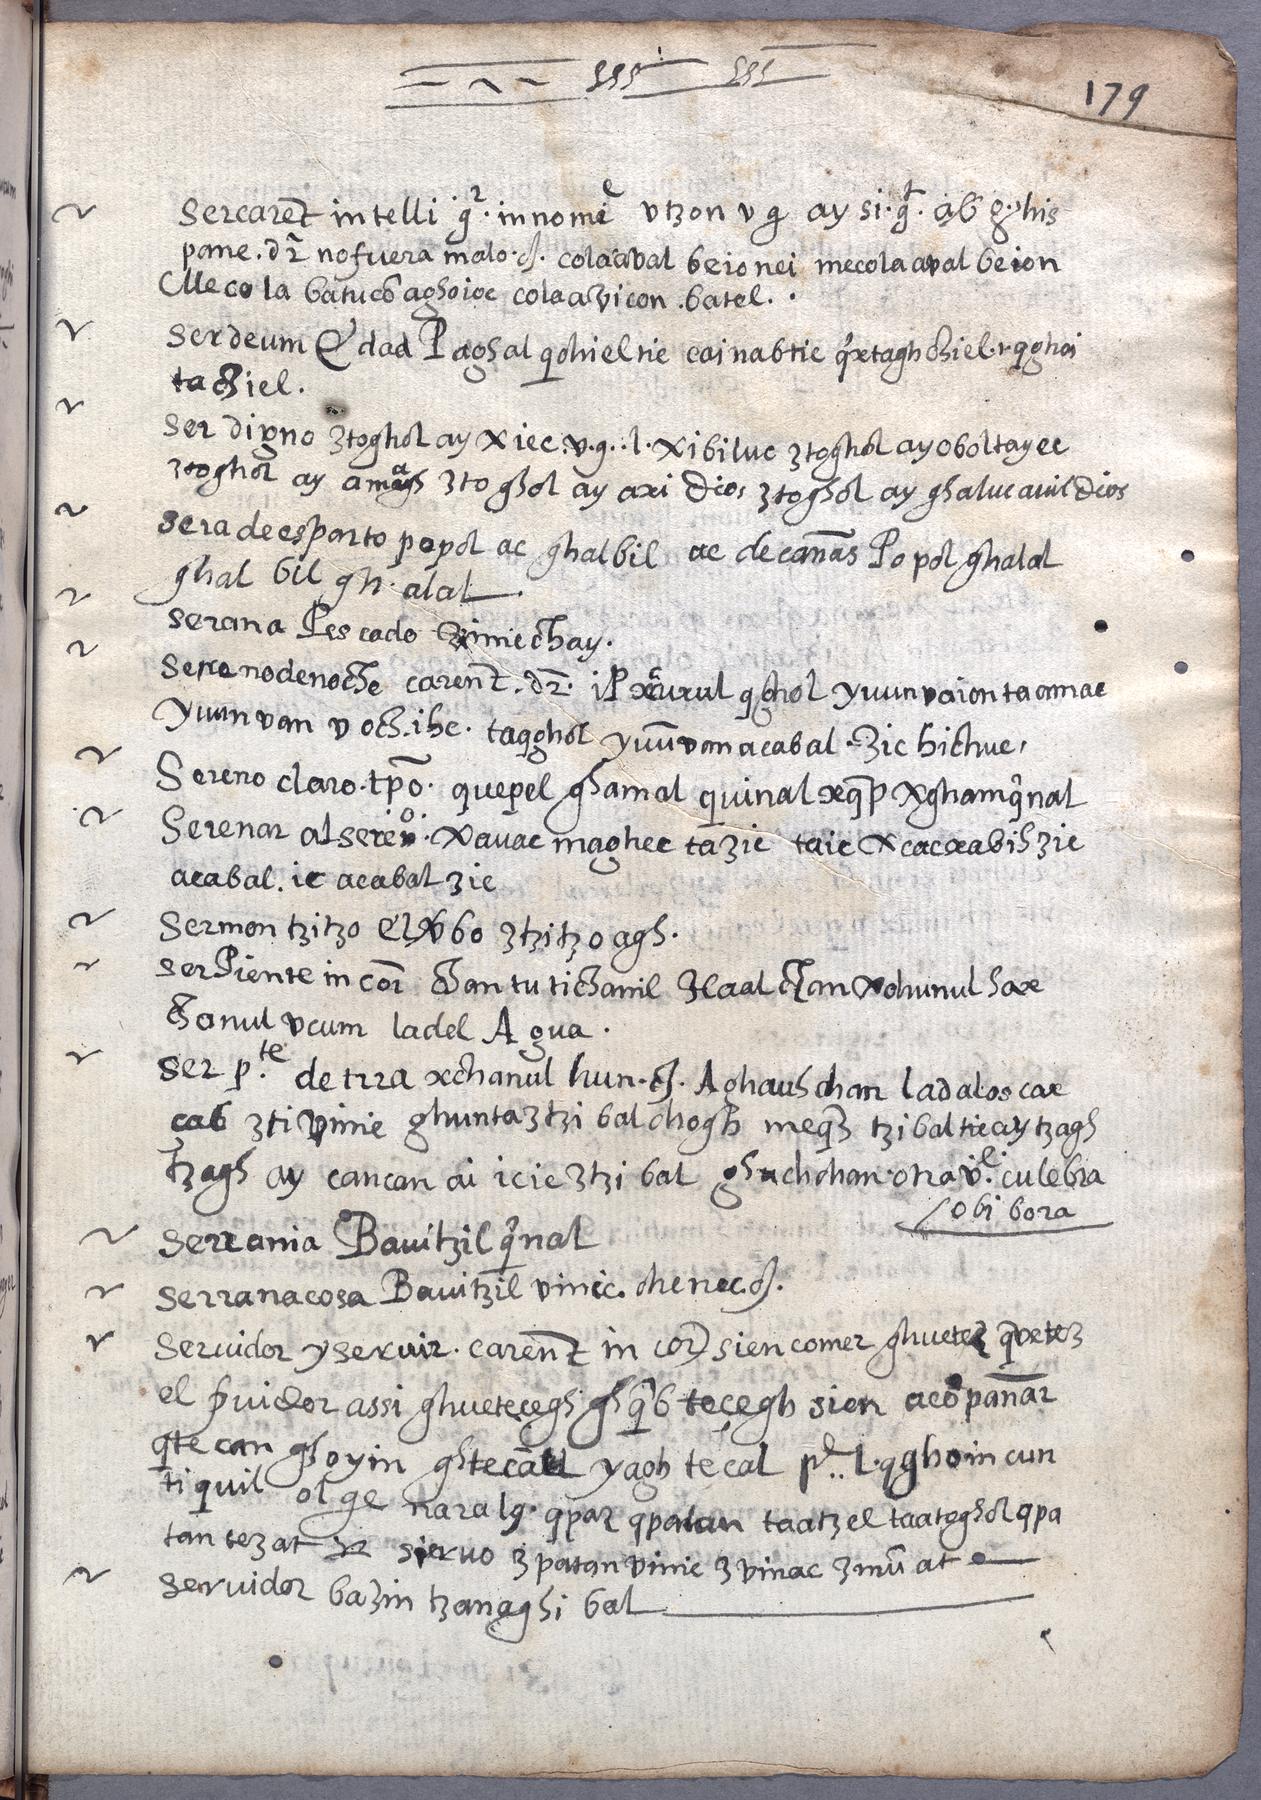 179
Sercarēt intelli ·q̄r· innomīe vtzon v g ay si·q̄t· ab g. his
pane. dr̄ nofuera malo·ɠ. colaaval beionei mecolaaval beion
Mecola batucō aghoioc colaavicon .batel. ·
Ser deum Edad Paghal qchieltic cainabtic q̄xtagh chiel·rqghoi
tachiel.
Ser digno ꜫtoghol ay xiec .v.g..l. Xibiluc ꜫtoghol ayoboltayec
ꜫtoghol ay amagh ꜫtoghol ay axi Dios ꜫtoghol ay ghalucavil Dios
Seradeesparto popol ac ghalbil ac decanas Popol ghalal
ghal bil gh·alal.
Serana Pescado ꜫimicchay.
Serenodenoche carent̄. dr̄. iP qghol yuunvaiontaamac
yuunvan v och·ihc· taqghol yuūvanacabal ·ꜫic hichuc,
Sereno claro·tp̄o· quepel ghamal quinal xq̄p Xghamq̄nal
Serenar alsereno·Xavac maghec taꜫic taic Xcacxabihꜫic
acabal. ic acabal ꜫic
Sermon tzitzo bo ꜫtzitzoagh.
serPiente in cōr chan tu tichanil Haal chan Xohunul hax
chanul vcum ladel Agua.
Ser p.te de trra xchanul hun·ɠ. Aghauhchan ladaloscax
cab ꜫti vinic ghuntaꜫtzi bal chogh meq̄ꜫ tzibalticaytzagh
tzagh ay cancan ai icicꜫtzi bal ghuchchan·otra v̄l̄·culebra
/obi bora
Serrania Bauitzil q̄nal
Serranacosa Bauitzil vinic. chenec.ɠ.
Seruidor yseruir. carent̄ in cōr sien comer ghueteꜫ q̄veteꜫ
el p̄uidor assi ghueteçegh ghq̄b teçegh sien acōpanar
qtecan ghoyin yagh teçal l·qghoin cun
tiquil olqe naralq· qpaꜫ qpatan taatzel taatoghol qpa
tan teꜫat siervo ꜫpatan vinic ꜫvinac ꜫmū at
Seruidor baꜫin tzanaghi bal